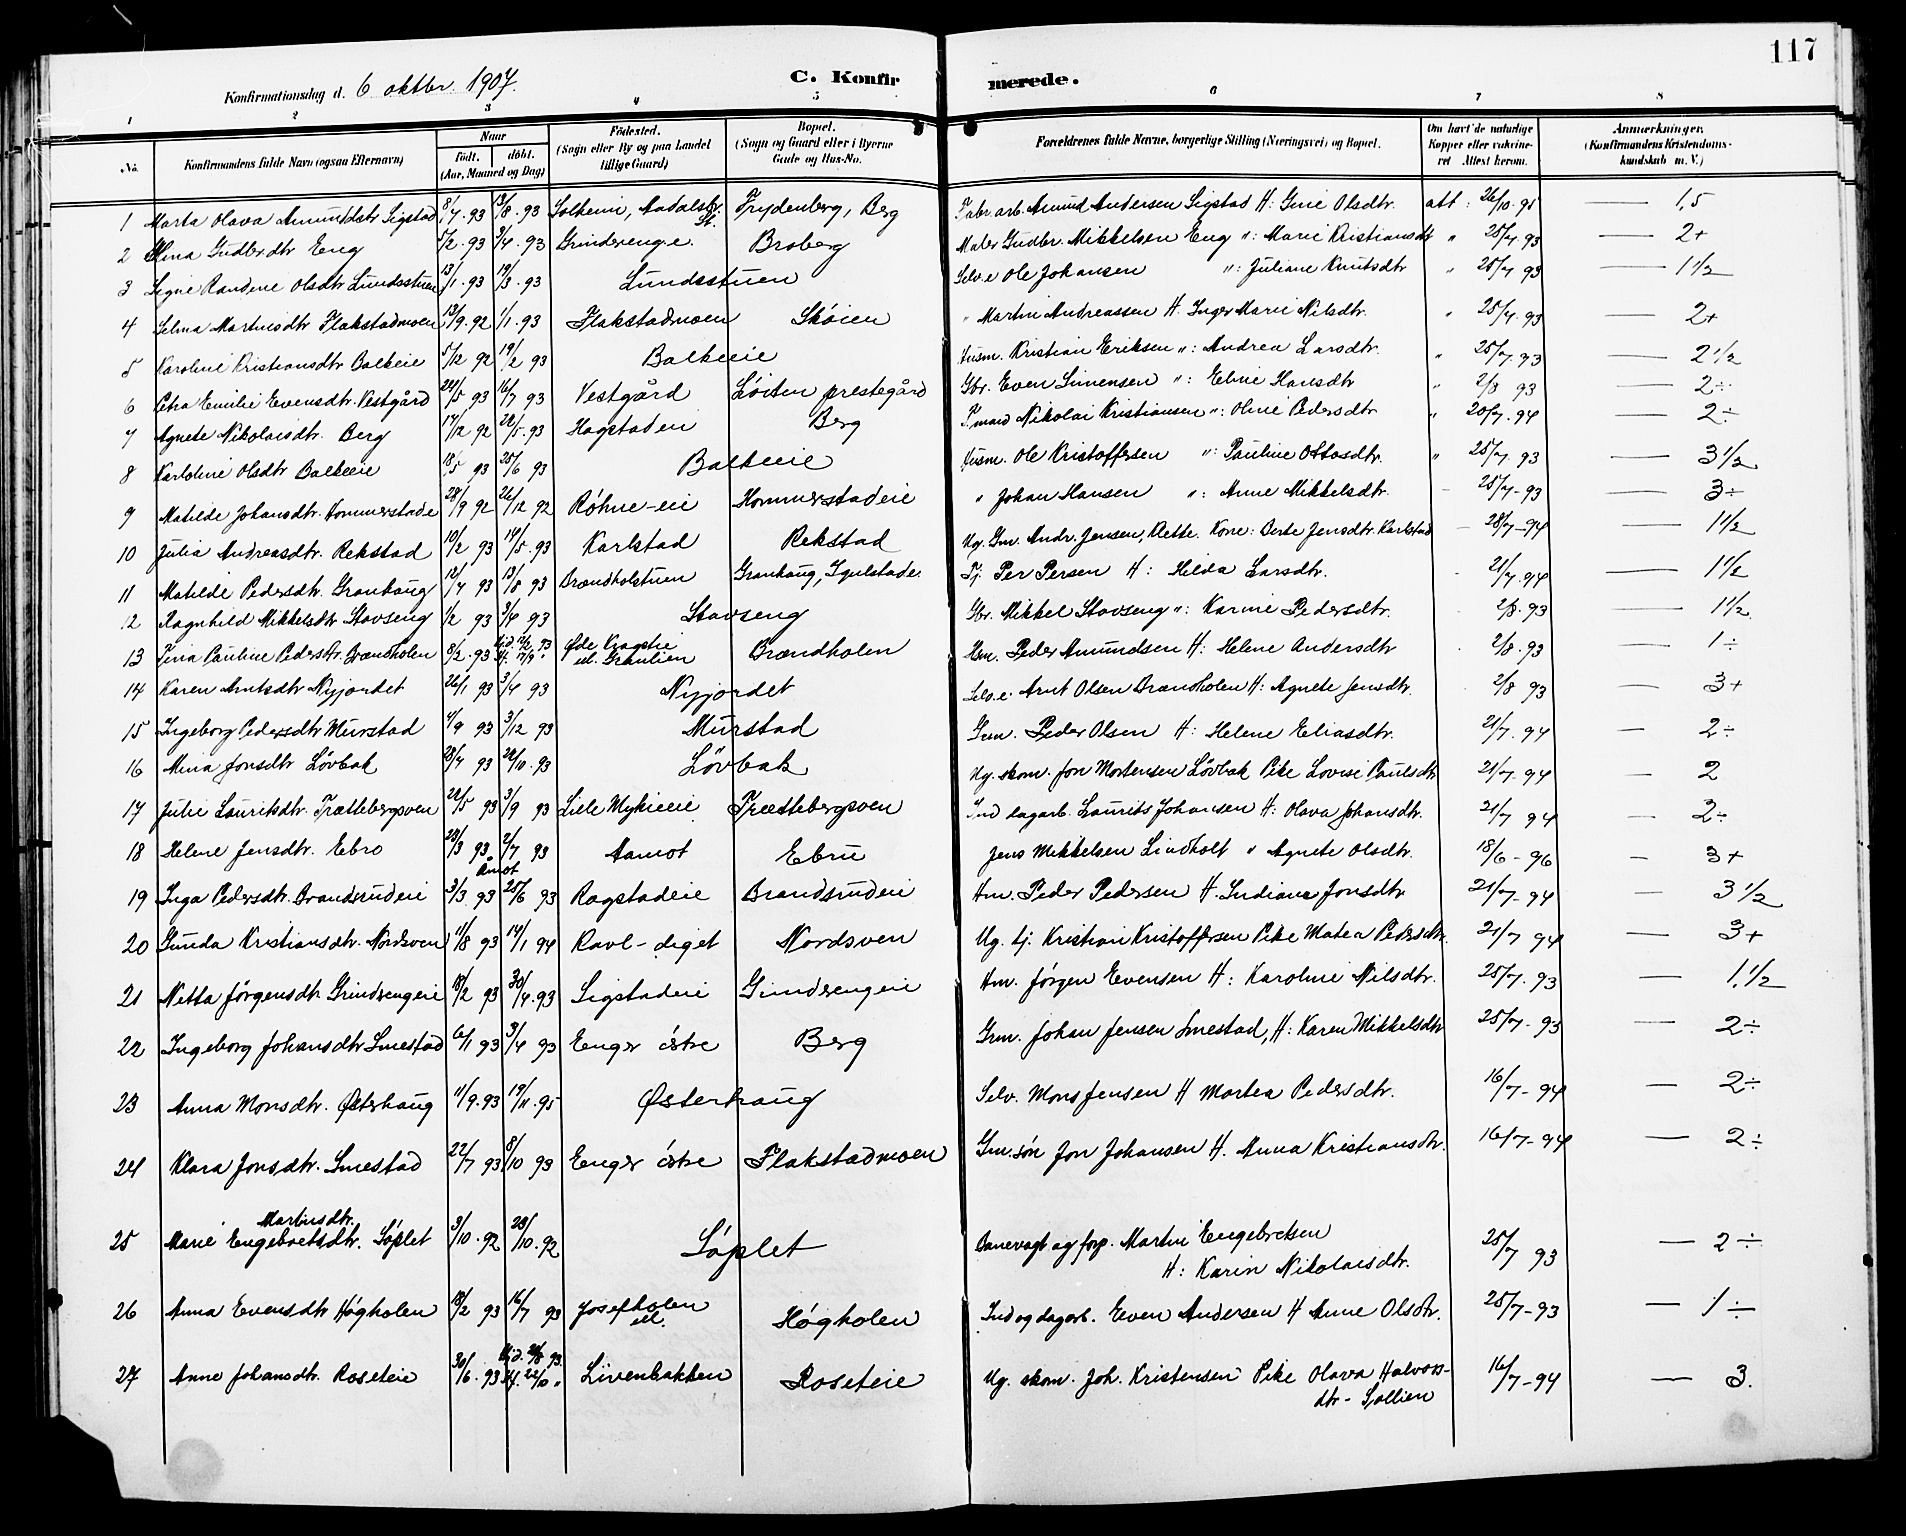 117
Konfirmationsdag d. 6 oktbr. 1907.
C. Konfirmerede.
1 2 3 4 5 6 7 8
No.
Konfirmandens fulde Navn (ogsaa Efternavn)
Naar
født. døbt.
(Aar, Maaned og Dag)
Fødested.
(Sogn eller By og paa Landet
tillige Gaard)
Bopæl.
(Sogn og Gaard eller i Byerne
Gade og Hus-No.
Forældrenes fulde Navne, borgerlige Stilling (Næringsvei) og Bopæl.
Om havt de naturlige
Kopper eller vaccine-
ret Attest herom.
Anmerkninger.
(Konfirmandens Kristendoms-
kundskab m. V.)
1 Marta Olava Amundsdtr Sigstad 8/7.93 13/8.93 Solheim, Aadalsbr. St. Frydenberg, Berg Fabr.arb. Amund Andersen Sigstad H: Gine Olsdtr. att: 26/10.95 — 1,5
2 Gudbr.dtr Eng 5/2.93 3/4.93 Grindsenge. Broberg Maler Gudbr. Mikkelsen Eng ": Marie Kristiansdt " 25/7.93 — 2+
3 Signe Randine Olsdtr Lundsstuen 13/1.93 19/3.93 Lundsstuen Selv.e Ole Johansen ": Juliane Knutsdtr " 25/7 93 — 1 1/2
4 Selma Martinsdtr Flakstadmoen 13/9.92 1/1.93 Flakstadmoen Skóien " Martin Andreassen H. Inger Marie Nilsdtr. " 25/7.93 — 2+
5 Karoline Kristiansdtr Balkeie 5/12 92 19/2 93 Balkeeie Husm. Kristian Eriksen ": Andrea Larsdtr. " 25/7.93 — 2 1/2
6 Petra Emilie Evensdtr. Vestgård 24/5 93 16/7 93 Vestgård Lóiten prestegård Gbr. Even Simensen ": Eline Hansdtr " 2/8 93 — 2÷
7 Agnete Nikolaisdtr. Berg 17/12 92 22/5.93 Hagstaden Berg Nikolai Kristiansen ": Oline Pedersdtr " 20/7.94 — 2÷
8 Karloline Olsdtr Balkeeie 18/5 93 25/6 93 Balkeeie Husm. Ole Kristoffersen ": Pauline Ottosdtr. " 25/7.93 — 3 1/2
9 Matilde Johansdtr. Hommerstade 28/9 92 26/12 92 Róhne-eie Hommerstadeie " Johan Hansen ": Anne Mikkelsdtr. - 25/7-93 — 3÷
10 Julia Andreasdtr. Rekstad 10/2 93 14/5.93 Karlstad Rekstad Ug. Gm. Andr. Jensen, Klette. Kone: Berte Jensdtr. Karlstad - 28/7-94 — 1 1/2
11 Matilde Pedersdtr. Granhaug 12/7 93 13/8 93 Brændholstuen Granhaug, Igelstade. Tj. Per Persen H: Hilda Larsdtr. - 21/7.94 — 1 1/2
12 Ragnhild Mikkelsdtr Stavseng 1/2 93 3/4 93 Stavseng Gbr. Mikkel Stavseng ": Karine Pedersdtr. 2/8.93 — 1 1/2
13 Pauline Pedersdtr. Brændholen 8/2.93 93 17/9 " Øde Kragstie el. Granlien Brændholen Hm. Peder Amundsen H: Helene Andersdtr 2/8.93 — 1÷
14 Karen Arntsdtr Nyjordet 26/1 93 3/4 93 Nyjordet Selv.e. Arnt Olsen Brændholen H: Agnete Jensdtr. 2/8 93 — 3+
15 Ingeborg Pedersdtr Murstad 4/9 93 3/12 93 Murstad Grm. Peder Olsen H: Helene Eliasdtr. 21/7.94 — 2÷
16 Mina Jonsdtr Lövbak 23/7 93 29/10.93 Lövbak Ug. skom. Jon Mortensen Lövbak Pike Lovise Paulsdtr 21/7-94 — 2
17 Julie Lauritsdtr. Trættebergsven 22/5 93 3/9 93 Lille Mykieeie Trættebergsven Ind dagarb. Laurits Johansen H: Olava Johansdtr. 21/7 94 — 2÷
18 Helene Jensdtr. Ebro 23/3 93. 2/7 93 Aamot Ebru Jens Mikkelsen Lindholt " Agnete Olsdtr. 18/6-96 — 3+
Åmot
19 Inga Pedersdtr. Brandsrudeie 3/3 93 25/6 93 Ragstadeie Brandsrudeie Hm. Peder Pedersen H. Indiana Jonsdtr 21/7-94 — 3 1/2
20 Gunda Kristiansdtr. Nordsven 11/8 93 14/1 94 Ravl-diget Nordsven Ug. tj. Kristian Kristoffersen Pike Matea Pedersdtr. 21/7 94 — 3+
21 Netta Jörgensdtr Grindsengeie 18/2 93 30/4.93 Sigstadeie Grindsengeie Hm. Jørgen Evensen H: Karoline Nilsdtr. 25/7.93 — 1,1/2
22 Ingeborg Johansdtr Smestad 6/1 93 3/4 93 Enger óstre Berg Grm. Johan Jensen Smestad, H: Karen Mikkelsdtr 25/7-93 — 2÷
23 Anna Monsdtr. Østerhaug 11/9.93 19/11.95 Østerhaug Selv. Mons Jensen H Martea Pedersdtr. 16/7-94 — 2÷
24 Klara Jonsdtr. Smestad 22/7 93 8/10 93 Enger óstre Flakstadmoen Gm.søn Jon Johansen H. Anna Kristiansdtr. 16/7-94 — 2÷
Martinsdtr.
25 Marie Engebretsdtr. Sóplet 3/10.92 23/10.92 Sóplet Banevagt og forp. Martin Engebretsen 25/7 93 — 2÷
H: Karin Nikolaisdtr.
26 Anna Evensdtr Högholen 18/2 93 16/7 93 Josefholen el. Høgholen Ind og dagarb. Even Andersen H Anne Olsdtr. 25/7-93 — 1÷
27 Anne Johansdtr. Roseteie 30/6.93 93. 22/10 " Livenbakken Roseteie Ug. skom. Joh. Kristensen Pike Olava Halvors- 16/7-94 — 3.
dtr- Sollien